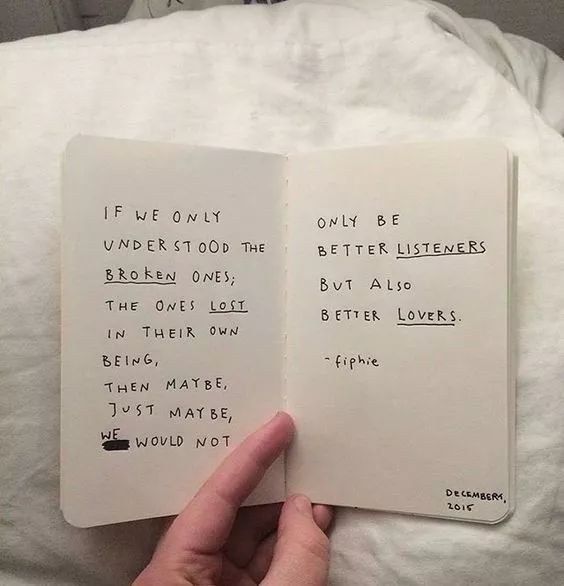 IF WE ONLY
UNDERSTOOD THE
BROKEN ONES;
THE ONES LOST
IN THEIR OWN
BEING,
THEN MAYBE,
JUST MAYBE,
WE WOULD NOT
ONLY BE
BETTER LISTENERS
BUT ALSO
BETTER LOVERS.
-fiphie
DECEMBER4,
2015